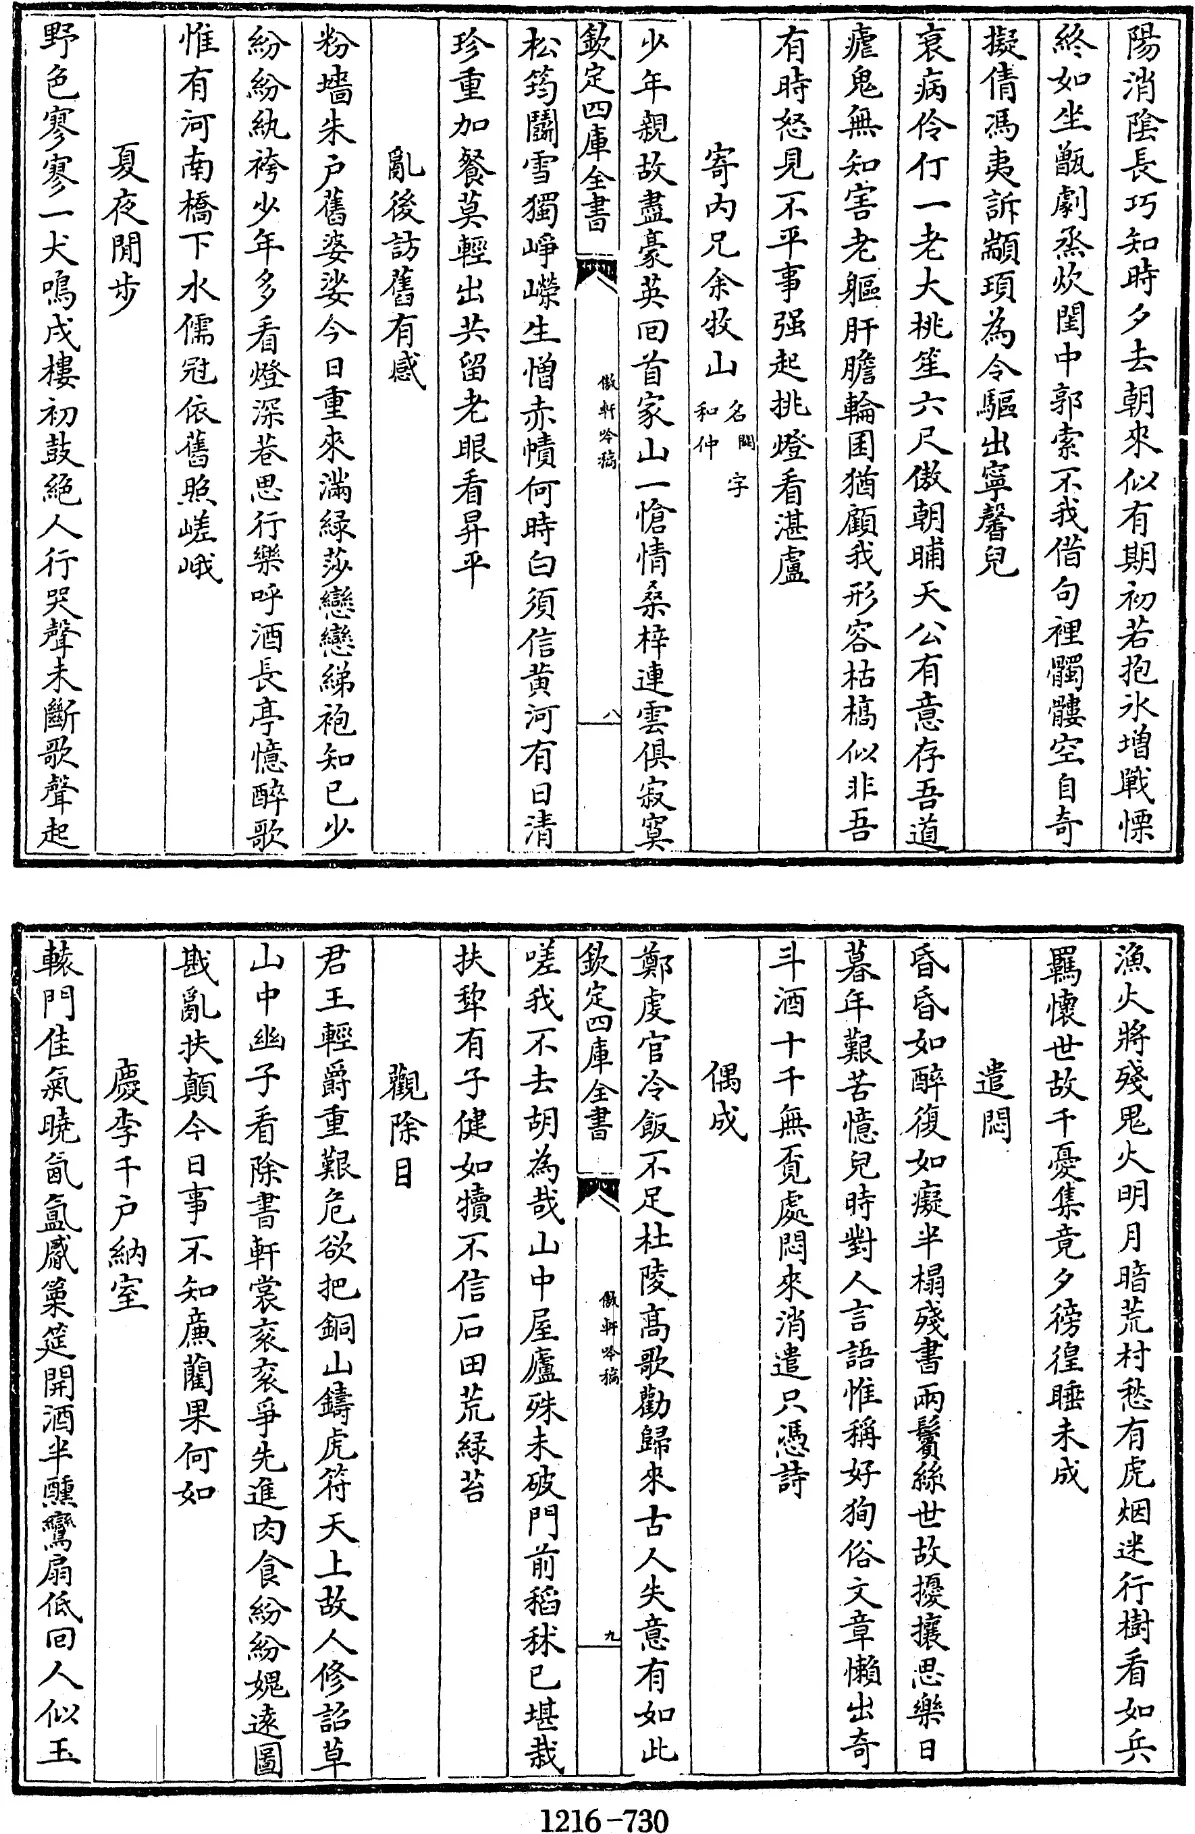 陽消陰長巧知時夕去朝來似有期初若抱氷增戰慄
終如坐甑劇烝炊閨中郭索不我借句裡髑髏空自奇
擬倩馮夷訴顓頊為令驅出寧馨兒
衰病伶仃一老大桃笙六尺傲朝晡天公有意存吾道
瘧鬼無知害老軀肝膽輪囷猶顧我形容枯槁似非吾
有時怒見不平事强起挑燈看湛盧
寄内兄余牧山名闕字和仲
少年親故盡豪英回首家山一愴情桑梓連雲俱寂寞
欽定四庫全書 傲軒吟稿 八
松筠鬭雪獨崢嶸生憎赤幘何時白須信黄河有日清
珍重加餐莫輕出共留老眼看昇平
亂後訪舊有感
粉墻朱户舊婆娑今日重來滿緑莎戀戀綈袍知已少
紛紛紈袴少年多看燈深巷思行樂呼酒長亭憶醉歌
惟有河南橋下水儒冠依舊照嵯峨
夏夜閒步
野色寥寥一犬鳴戍樓初鼓絶人行哭聲未斷歌聲起
漁火將殘鬼火明月暗荒村愁有虎烟迷行樹看如兵
羈懷世故千憂集竟夕徬徨睡未成
遣悶
昏昏如醉復如癡半榻殘書兩鬢絲世故擾攘思樂日
暮年艱苦憶兒時對人言語惟稱好狥俗文章懶出奇
斗酒十千無覔處悶來消遣只憑詩
偶成
鄭虔官冷飯不足杜陵髙歌勸歸來古人失意有如此
欽定四庫全書 傲軒吟稿 九
嗟我不去胡為哉山中屋廬殊未破門前稻秫已堪栽
扶犂有子健如犢不信石田荒緑苔
觀除目
君王輕爵重艱危欲把銅山鑄虎符天上故人修詔草
山中幽子看除書軒裳衮衮爭先進肉食紛紛媿逺圖
戡亂扶顛今日事不知亷藺果何如
慶李千户納室
轅門佳氣曉氤氲鳳篳筵開酒半醺鸞扇低回人似玉
1216-730